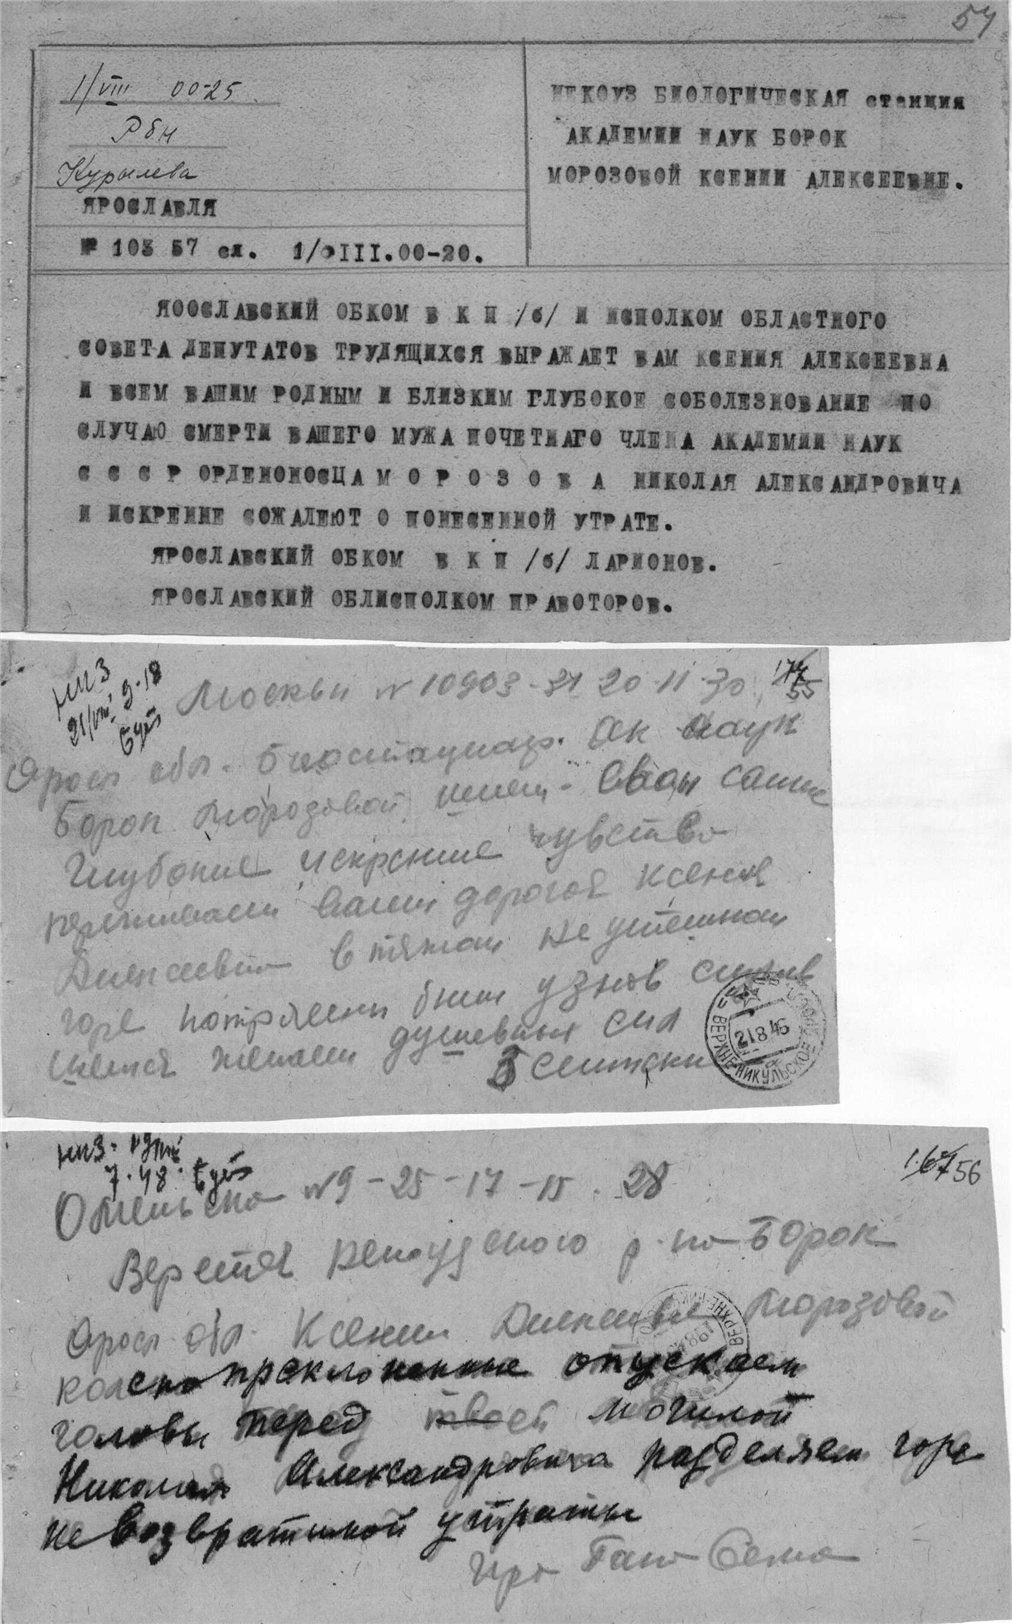 57
1/VIII 00-25
Рбн
Курылева
ЯРОСЛАВЛЯ
№ 103 57 сл. 1/VIII.00-20.
НЕКОУЗ БИОЛОГИЧЕСКАЯ станция
АКАДЕМИИ НАУК БОРОК
МОРОЗОВОЙ КСЕНИИ АЛЕКСЕЕВНЕ.
ЯООСЛАВСКИЙ ОБКОМ В К П /б/ И ИСПОЛКОМ ОБЛАСТНОГО
СОВЕТА ДЕПУТАТОВ ТРУДЯЩИХСЯ ВЫРАЖАЕТ ВАМ КСЕНИЯ АЛЕКСЕЕВНА
И ВСЕМ ВАШИМ РОДНЫМ И БЛИЗКИМ ГЛУБОКОЕ СОБОЛЕЗНОВАНИЕ ПО
СЛУЧАЮ СМЕРТИ ВАШЕГО МУЖА ПОЧЕТНАГО ЧЛЕНА АКАДЕМИИ НАУК
С С С Р ОРДЕНОНОСЦА М О Р О З О В А НИКОЛАЯ АЛЕКСАНДРОВИЧА
И ИСКРЕННЕ СОЖАЛЕЮТ О ПОНЕСЕННОЙ УТРАТЕ.
ЯРОСЛАВСКИЙ ОБКОМ В К П /б/ ЛАРИОНОВ.
ЯРОСЛАВСКИЙ ОБЛИСПОЛКОМ ПРАВОТОРОВ.
55
21/VIII 9-18
Москвы N 10903 31 20 11 30
Яросл обл. биостанция Ак Наук
Борок Морозовой самые
Глубокие искрение чувство
переживаем вами дорогая Ксения
Алексеевна в тяжом не утешном
горе потрясены были узнов
желаем душевных сил
ВЕРХНЕ-НИКУЛЬСКОЕ
21 8 46
56
7-48
N9-25-17-15. 28
Веретея Некоузского р-на Борок
Яросл. обл. Ксении Алексеевне Морозовой
коленопреклоненные опускаем
головы перед твоей могилой
Николая Александровича разделяем горе
невозвратимой утраты